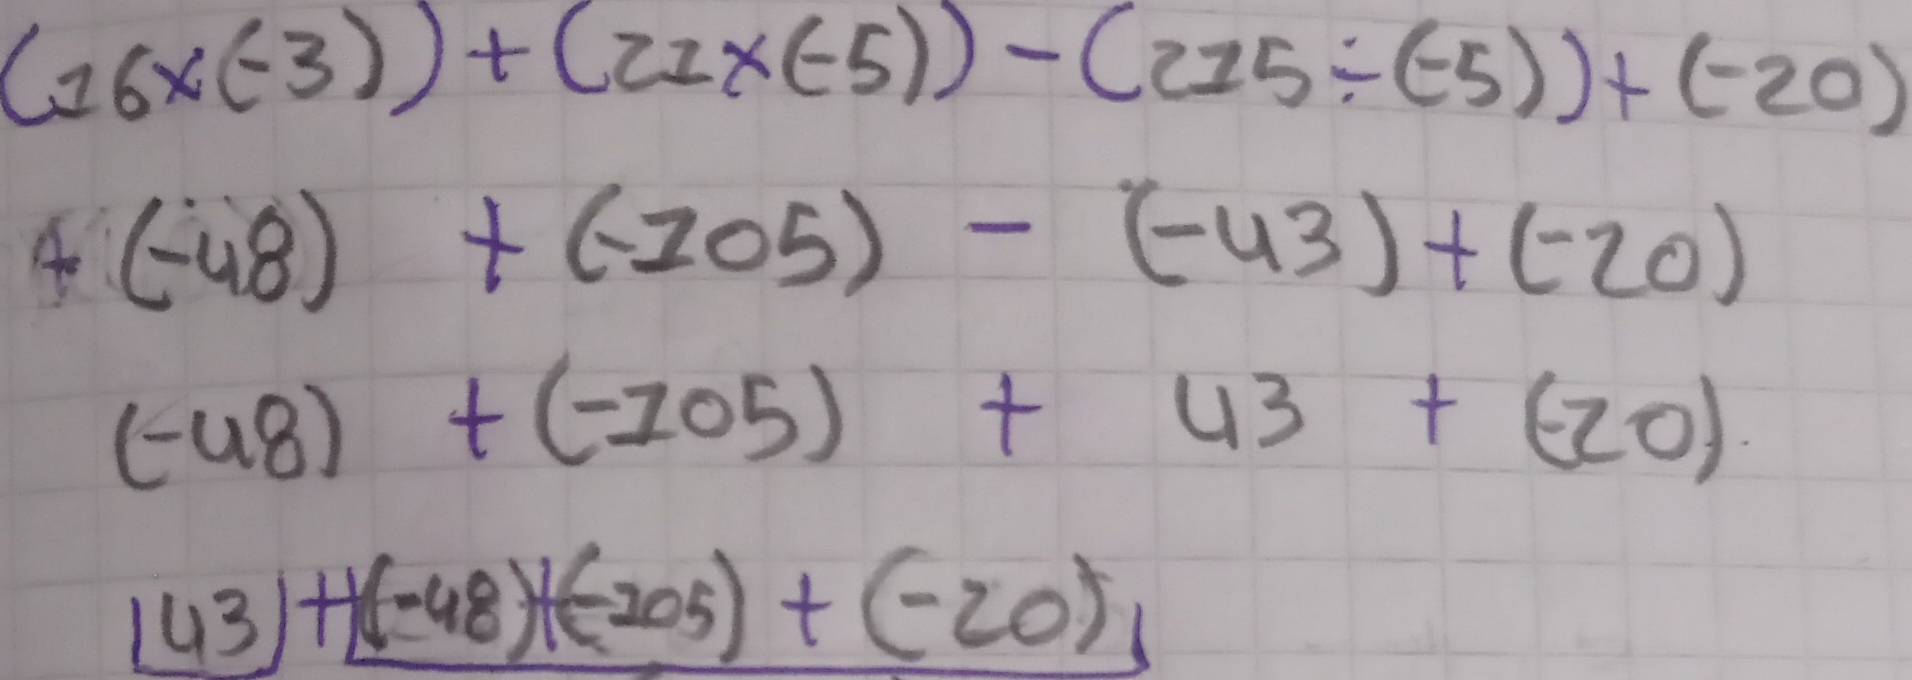 (16×(-3))+(21×(-5))-(215÷(-5))+(-20)
+(-48) + (-105) - (-43)+(-20)
(-48) + (-105) + 43 + (-20).
43+(-48)+(-105)+(-20)